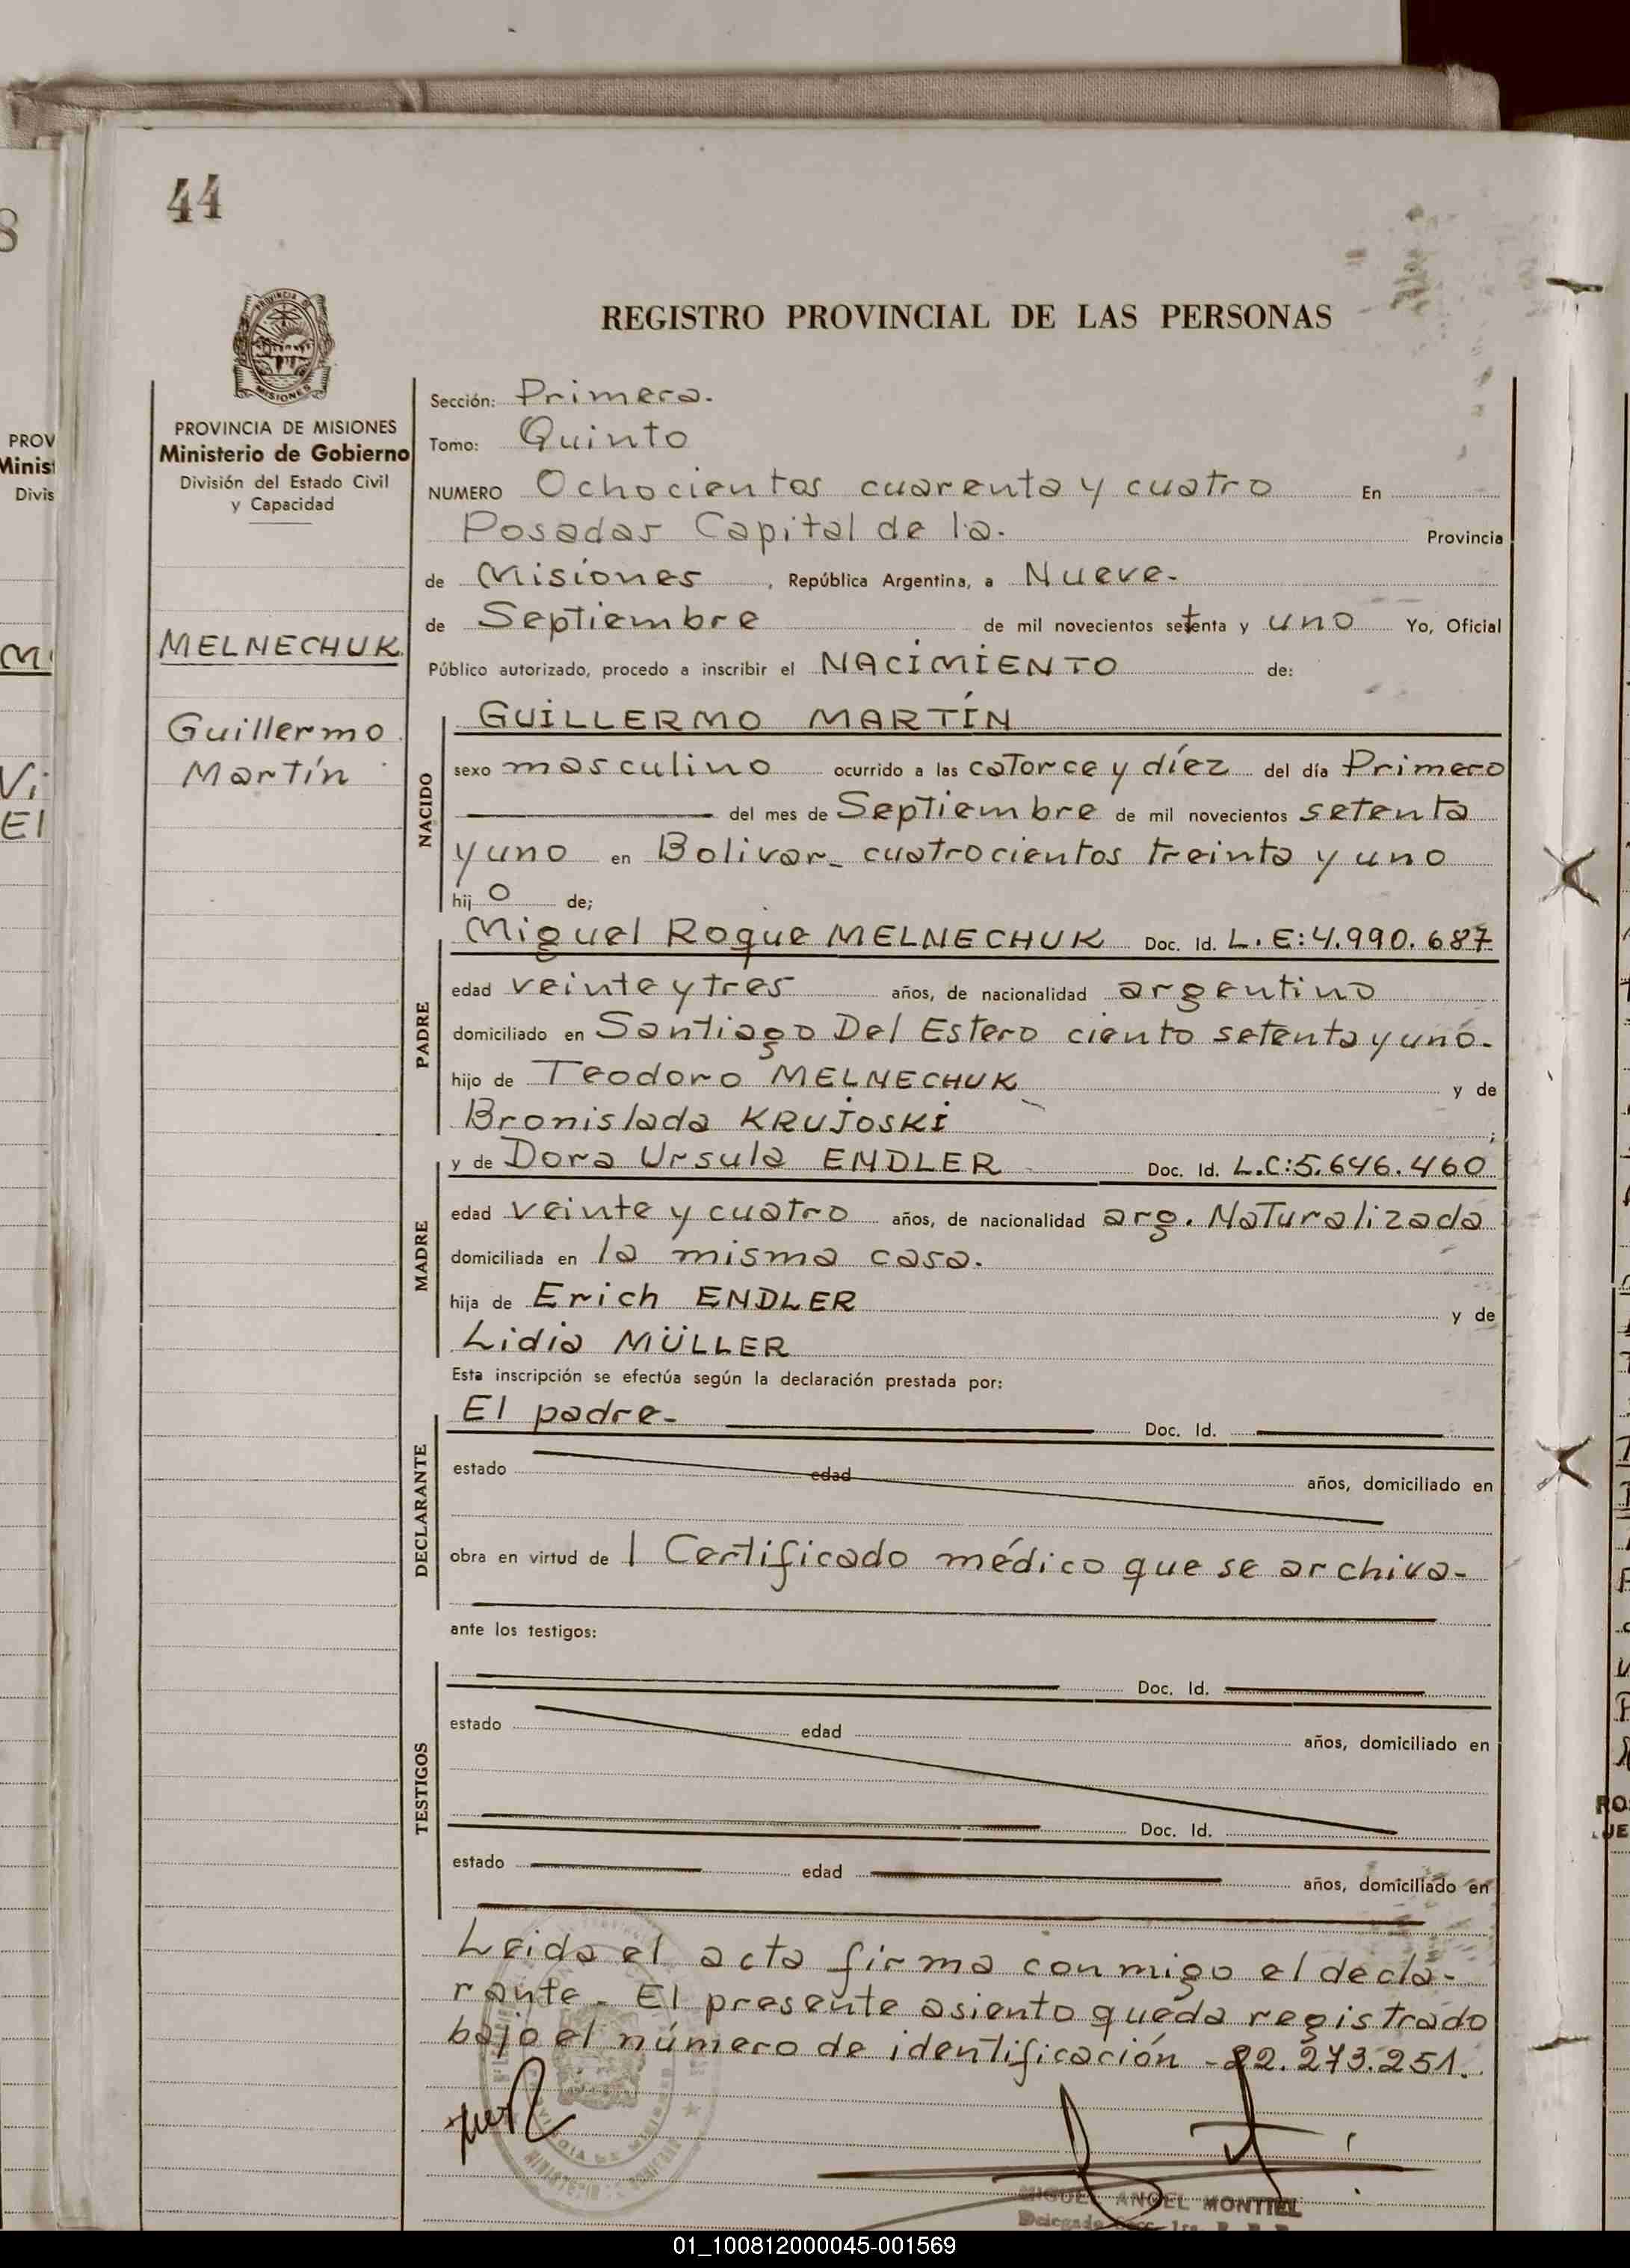 44
REGISTRO PROVINCIAL DE LAS PERSONAS
PROVINCIA DE MISIONES
Ministerio de Gobierno
División del Estado Civil
y Capacidad
MELNECHUK
Guillermo
Martín
Sección: Primera.
Tomo: Quinto
NUMERO Ochocientos cuarenta y cuatro En
Posadas Capital de la. Provincia
de Misiones, República Argentina, a Nueve.
de Septiembre de mil novecientos setenta y uno Yo, Oficial
Público autorizado, procedo a inscribir el NACIMIENTO de:
NACIDO
GUILLERMO MARTÍN
sexo masculino ocurrido a las catorce y díez del día Primero
del mes de Septiembre de mil novecientos setenta
y uno en Bolivar_ cuatrocientos treinta y uno
hijo de;
PADRE
Miguel Roque MELNECHUK Doc. Id. L.E:4.990.687
edad veinte y tres años, de nacionalidad argentino
domiciliado en Santiago Del Estero ciento setenta y uno.
hijo de Teodoro MELNECHUK y de
Bronislada KRUJOSKI;
MADRE
y de Dora Ursula ENDLER Doc. Id. L.C:5.646.460
edad veinte y cuatro años, de nacionalidad arg. Naturalizada
domiciliada en la misma casa.
hija de Erich ENDLER y de
Lidia MÜLLER
Esta inscripción se efectúa según la declaración prestada por:
DECLARANTE
El padre. Doc. Id.
estado edad años, domiciliado en
obra en virtud de 1 Certificado médico que se archiva.
ante los testigos:
TESTIGOS
Doc. Id.
estado edad años, domiciliado en
Doc. Id.
estado edad años, domiciliado en
Leida el acta firma conmigo el decla-
rante. El presente asiento queda registrado
bajo el número de identificación -22.273.251.
MIGUEL ANGEL MONTIEL
01_100812000045-001569